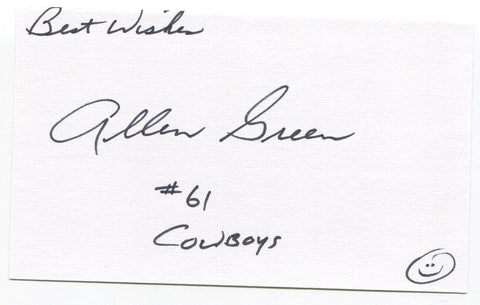 Best Wishes
Allen Green
#61
COWBOYS